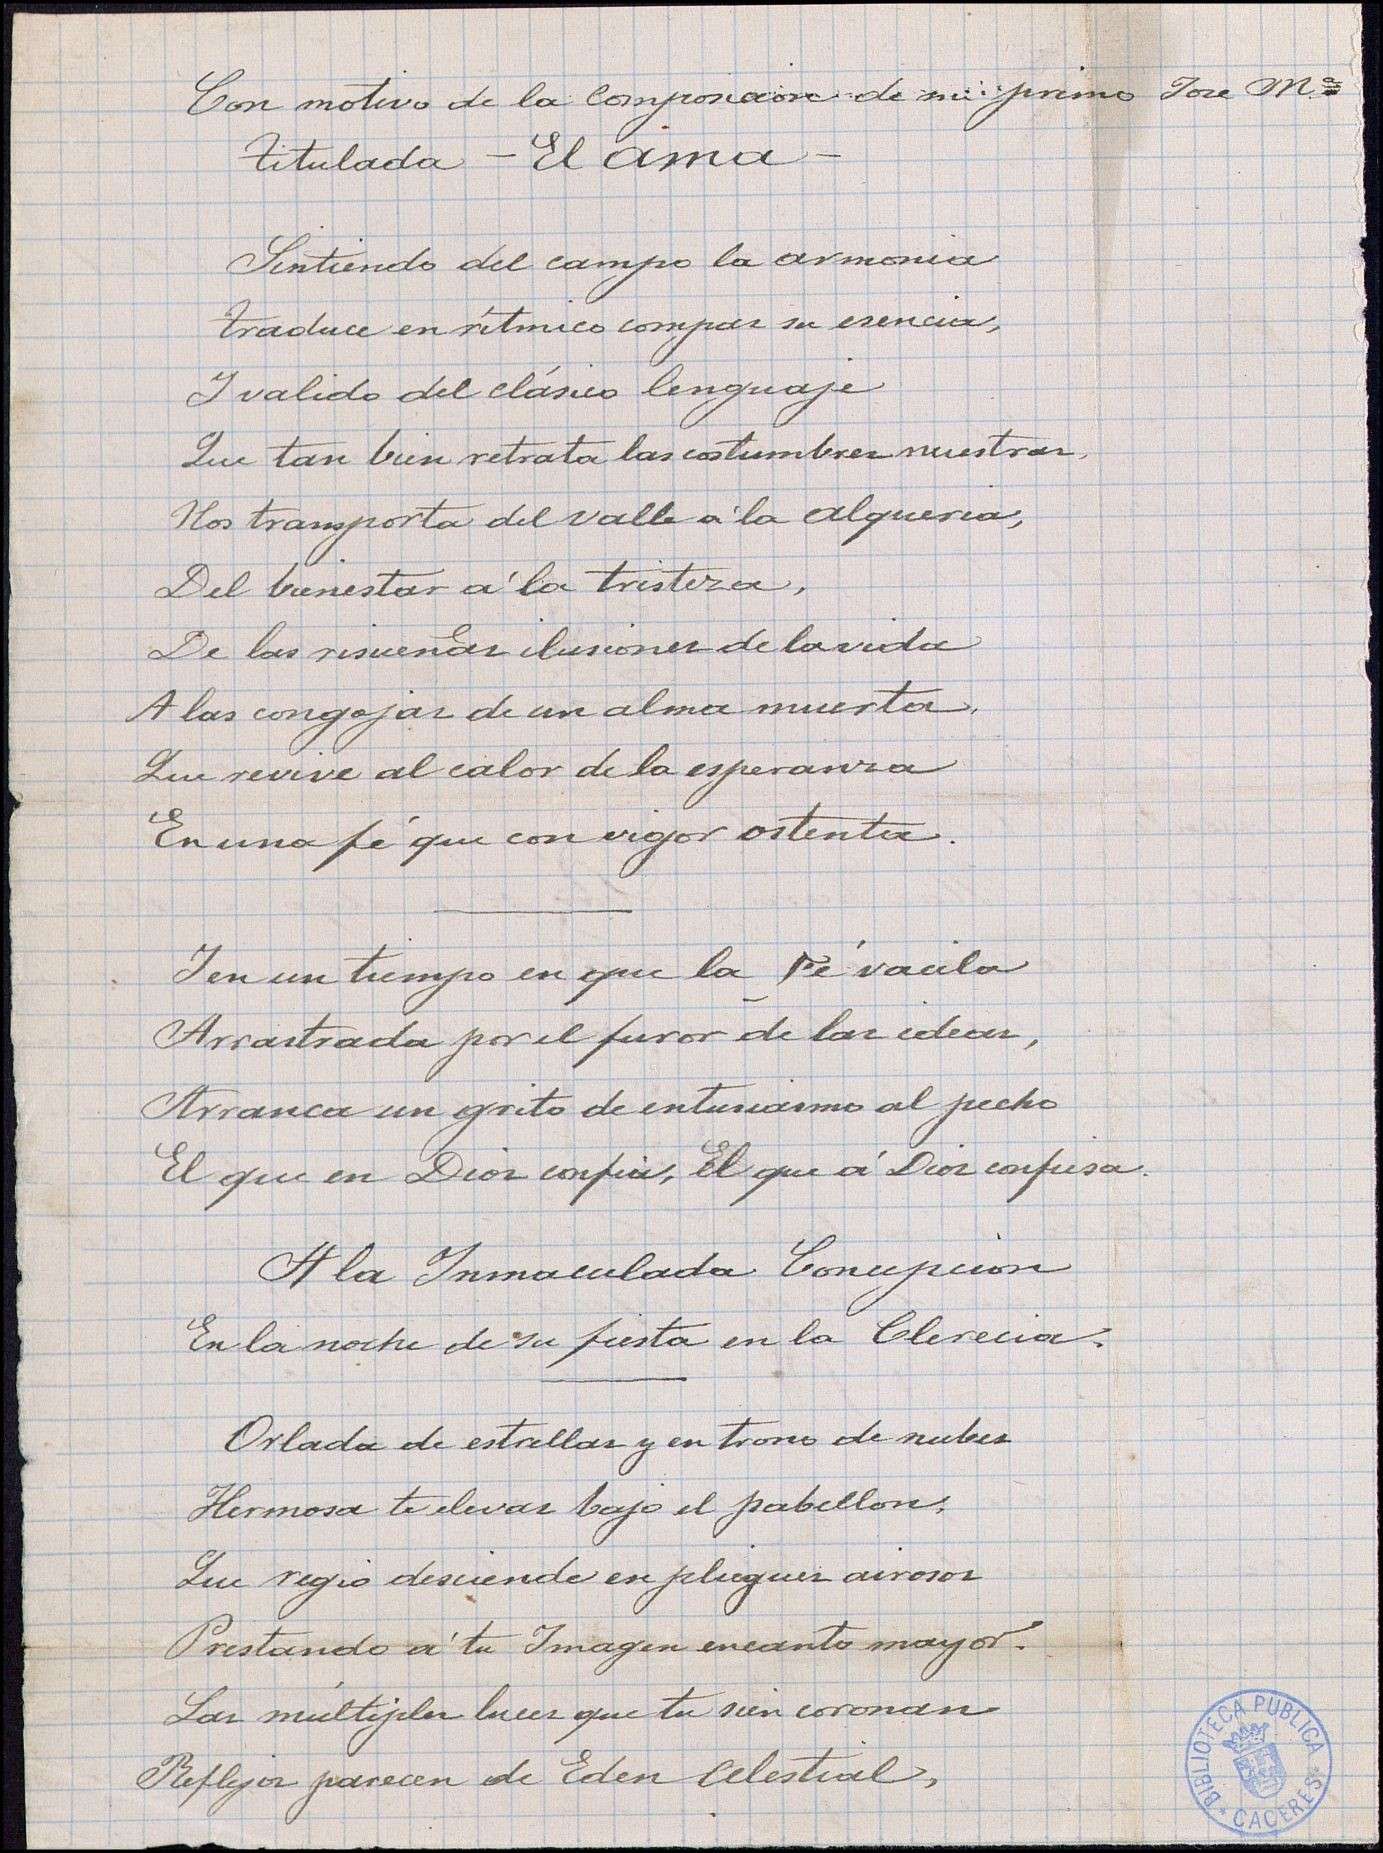 Con motivo de la Composicion de mi primo Jose Mª
titulada - El ama -
Sintiendo del campo la armonia
traduce en rítmico compas su esencia,
Y valido del clásico lenguaje
Que tan bien retrata las costumbres nuestras,
Nos transporta del valle á la alqueria,
Del bienestar á la tristeza,
De las risueñas ilusiones de la vida
A las congojas de un alma muerta,
Que revive al calor de la esperanza
En una fé que con vigor ostenta.
Y en un tiempo en que la Fé vacila
Arrastrada por el furor de las ideas,
Arranca un grito de entusiasmo al pecho
El que en Dios confia, El que á Dios confiesa.
A la Inmaculada Concepcion
En la noche de su fiesta en la Clerecia.
Orlada de estrellas y en trono de nubes
Hermosa te elevas bajo el pabellon,
Que regio desciende en pliegues airosos
Prestando á tu Imagen encanto mayor.
Las múltiples luces que tu sien coronan
Reflejos parecen de Eden Celestial,
BIBLIOTECA PUBLICA
CACERES